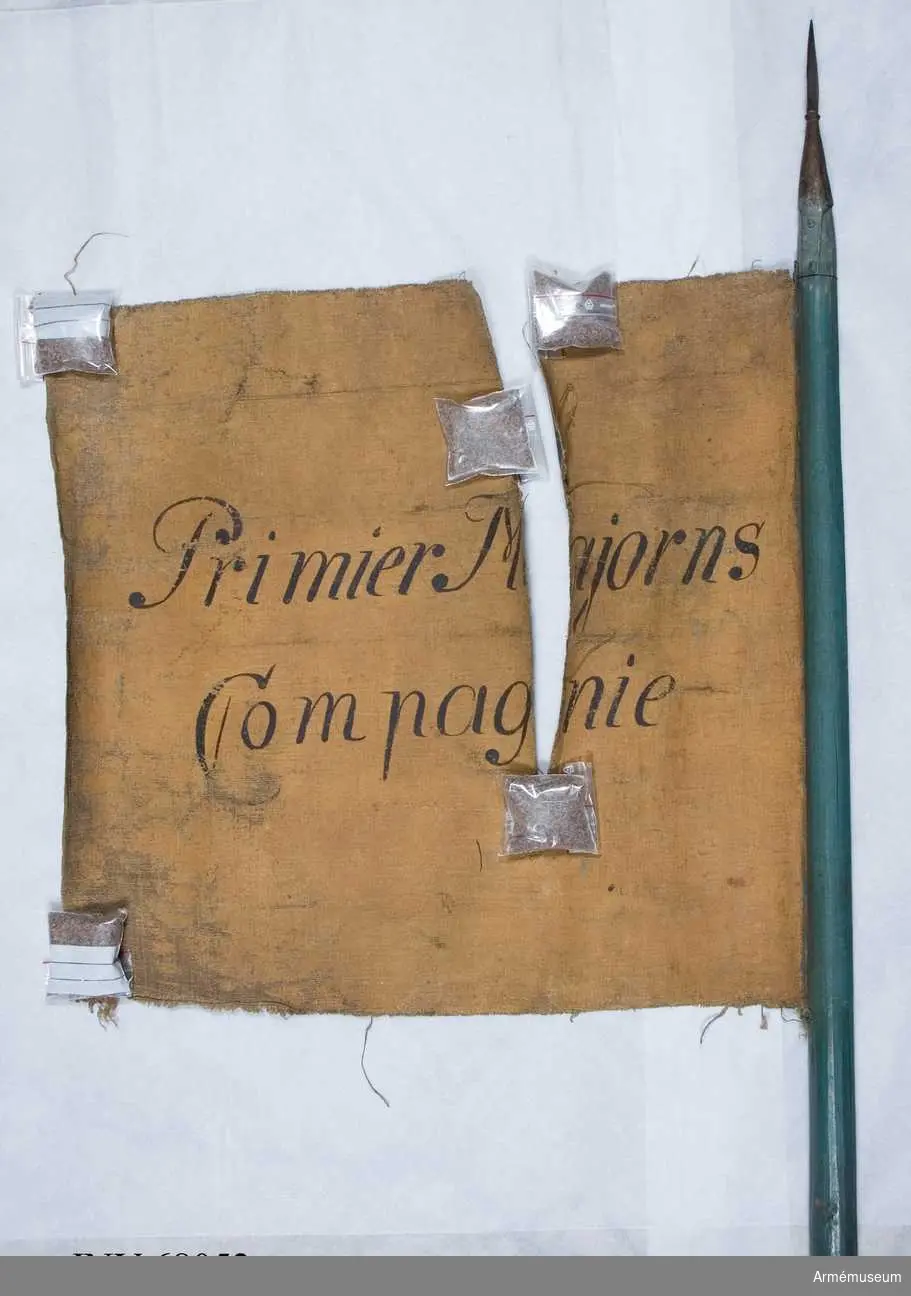 Primier Majorns
Compagnie
Armémuseum